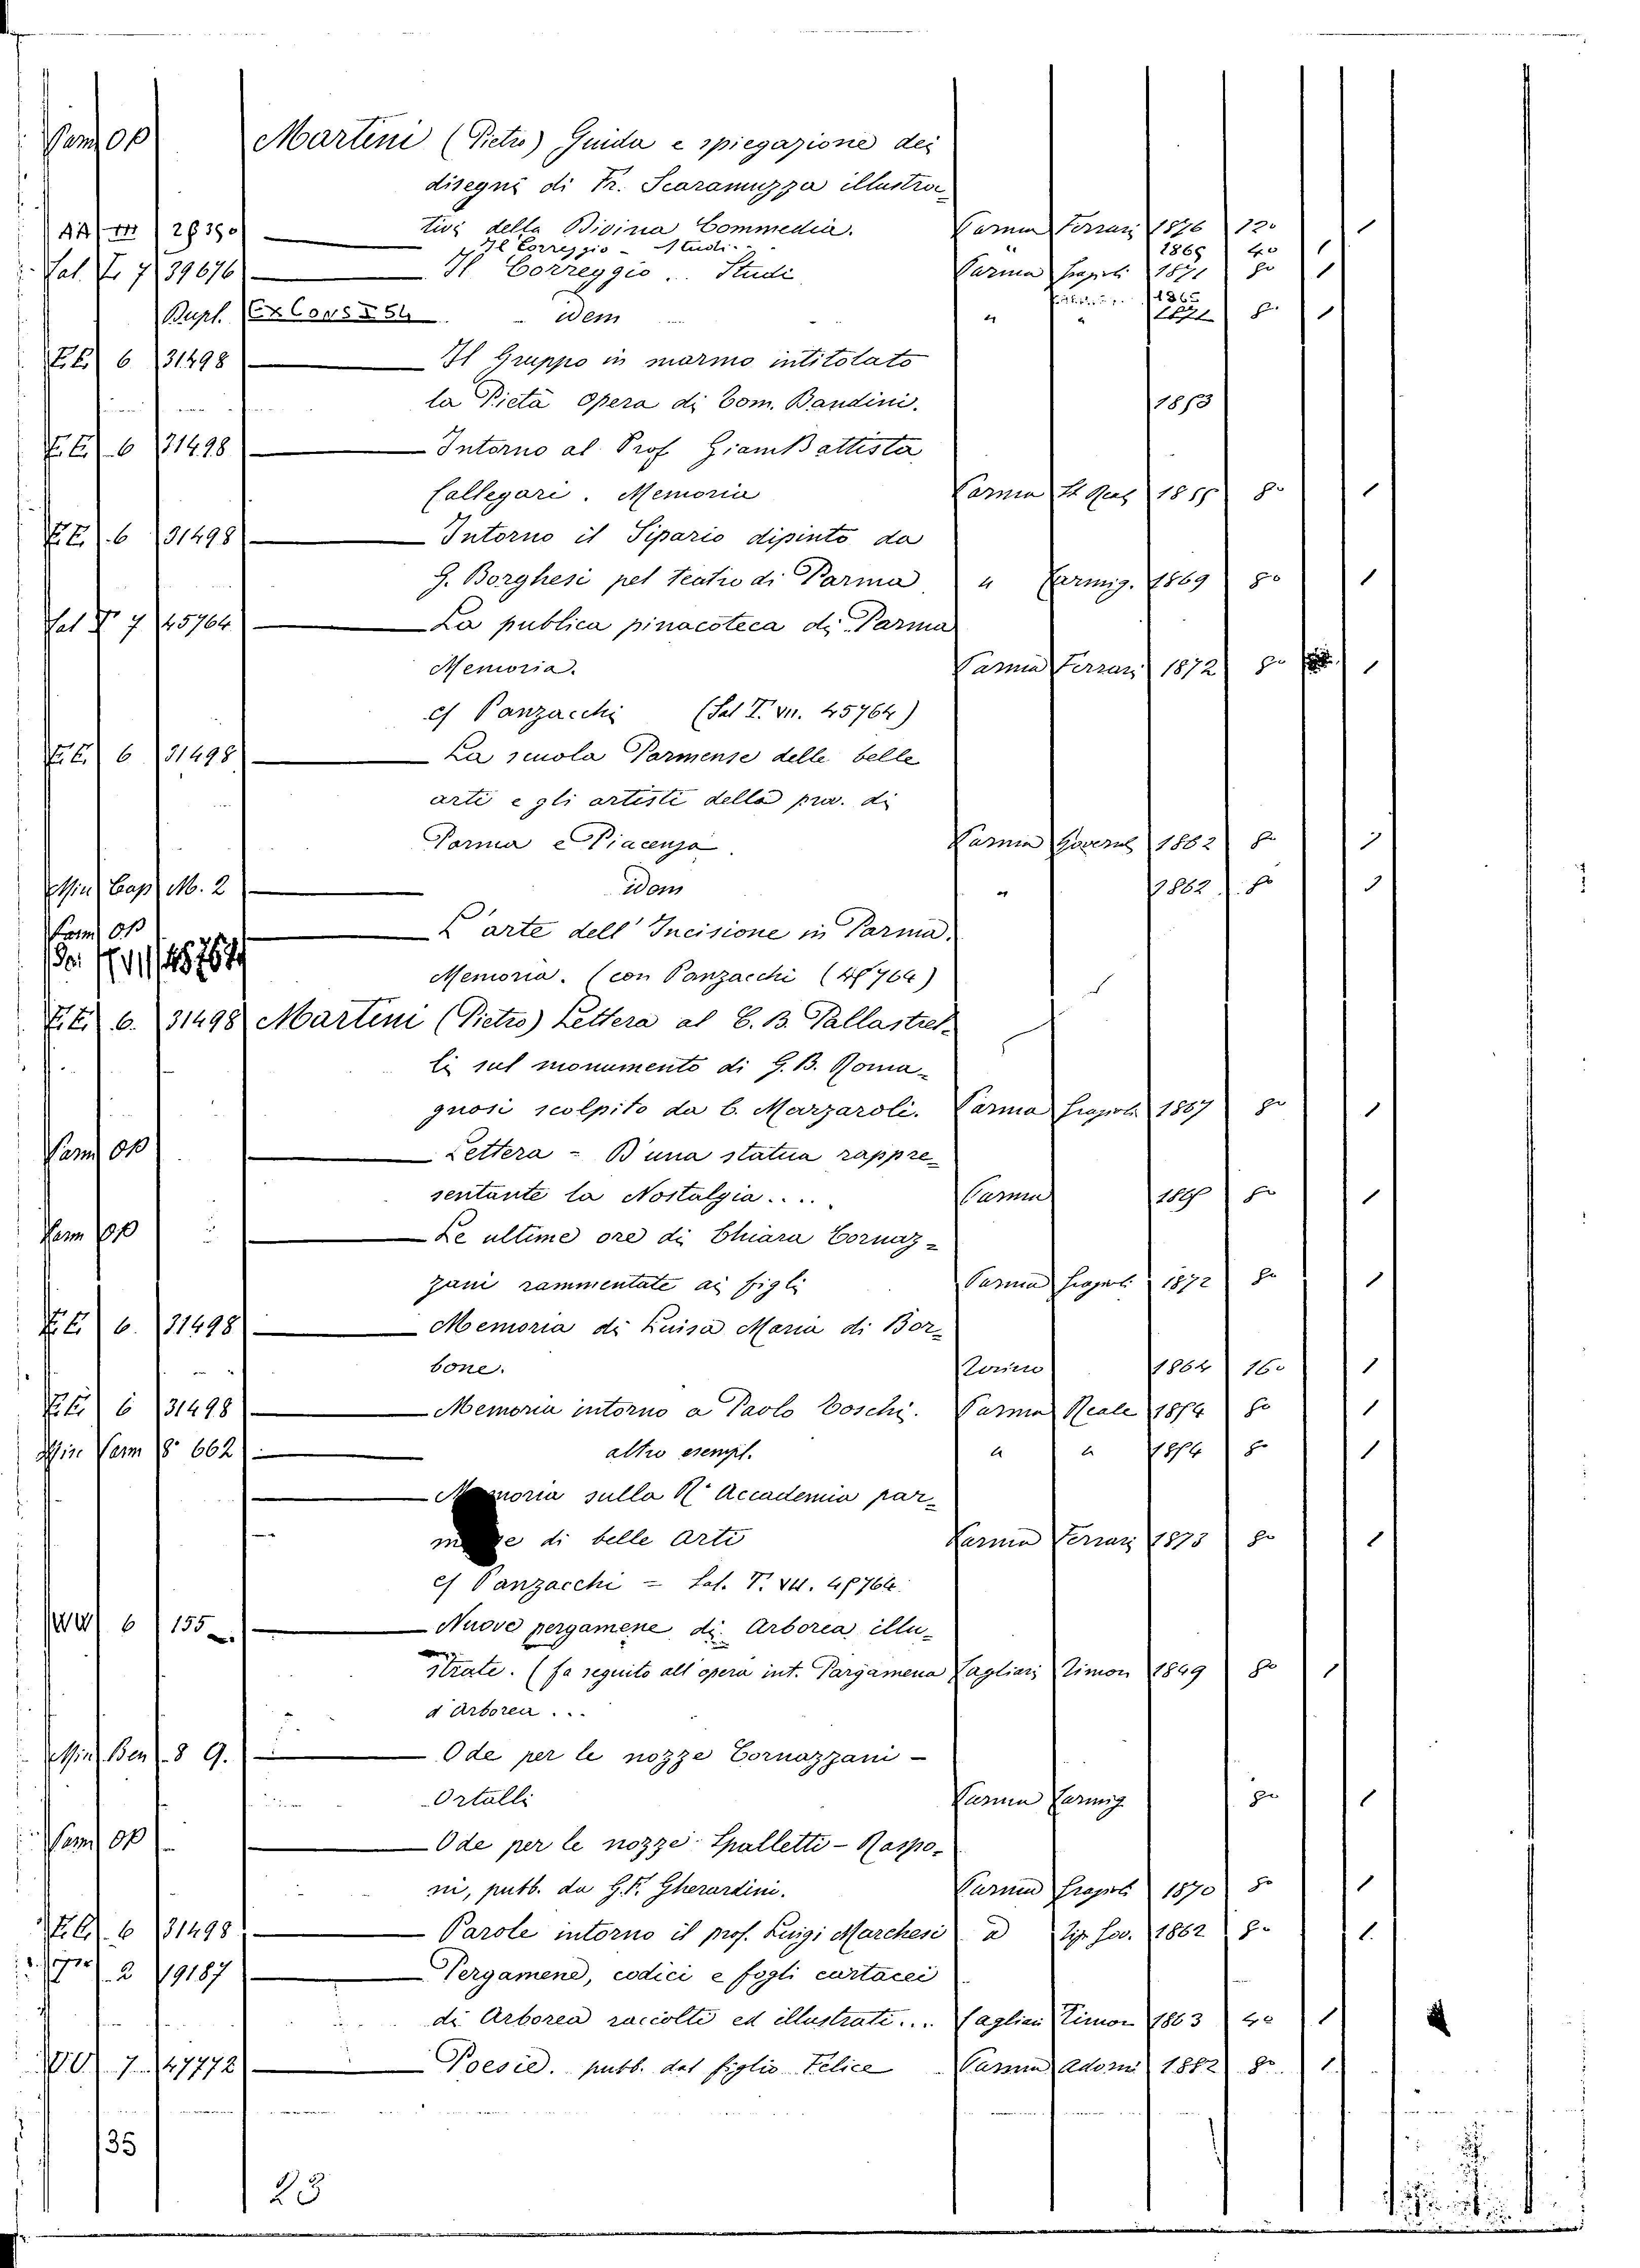 Parm Op Martini (Pietro) Guida e spiegazione dei
disegni di Fr. Scaramuzza illustra-
AA VII 28390 tivi della Divina Commedia. Parma Ferrari 1876 12° 1
Il Correggio - Studi - " 1865 4° 1
Sal. F. 7 39676 Il Correggio .. Studi Parma Grazioli 1871 8° 1
Dupl. Ex Cons I 54 idem " " 1865
1871 8° 1
E.E. 6 31498 Il Gruppo in marmo intitolato
la Pietà opera di Tom. Bandini. 1853
E.E. 6 31498 Intorno al Prof GiamBattista
Callegari. Memoria Parma 1855 8° 1
E.E. 6 31498 Intorno il Sipario dipinto da
G. Borghesi pel teatro di Parma " Carmig. 1869 8° 1
Sal F 7 45764 La publica pinacoteca di Parma
Memoria. Parma Ferrari 1872 8° 1
cf Panzacchi (Sal F. VII. 45764)
E.E. 6 31498 La scuola Parmense delle belle
arti e gli artisti della prov. di
Parma e Piacenza. Parma Governo 1862 8° 1
Min Cap M. 2 idem " 1862 8° 1
Parm Op L'arte dell' Incisione in Parma.
VII 45764
Memoria. (con Panzacchi (45764)
E.E. 6. 31498 Martini (Pietro) Lettera al C. B. Pallastrel-
li sul monumento di G. B. Roma-
gnosi scolpito da C. Marzaroli. Parma Grazioli 1867 8° 1
Parm Op Lettera - D'una statua rappre-
sentante la Nostalgia.... Parma 8° 1
Parm Op Le ultime ore di Chiara Cornaz-
zani rammentate ai figli Parma Grazioli 1872 8° 1
E.E. 6. 31498 Memoria di Luisa Maria di Bor-
bone. Torino 1864 16° 1
E.E. 6 31498 Memoria intorno a Paolo Toschi. Parma Reale 1854 8° 1
Min Parm 8° 662 altro esempl. " " 1854 8° 1
Memoria sulla R. Accademia par-
di belle Arti Parma Ferrari 1873 8° 1
cf Panzacchi = Sal. F. VII. 45764.
6 155 Nuove pergamene di Arborea illu-
strate. (fa seguito all' opera int. Pargamena Cagliari Timon 1849 8° 1
d'Arborea ...
Min Ben 8 9. Ode per le nozze Cornazzani -
Ortalli Parma Carmig 8° 1
Parm Op Ode per le nozze Spalletti - Raspo-
ni, pubb. da G. F. Gherardini. Parma Grazioli 1870 8° 1
E.E. 6 31498 Parole intorno il prof. Luigi Marchesi Tip. Gov. 1862 8° 1
2 19187 Pergamene, codici e fogli cartacei
di Arborea raccolti ed illustrati... Cagliari Timon 1863 4° 1
7 47772 Poesie. pubb. dal figlio Felice Parma Adorni 1882 8° 1
35
23